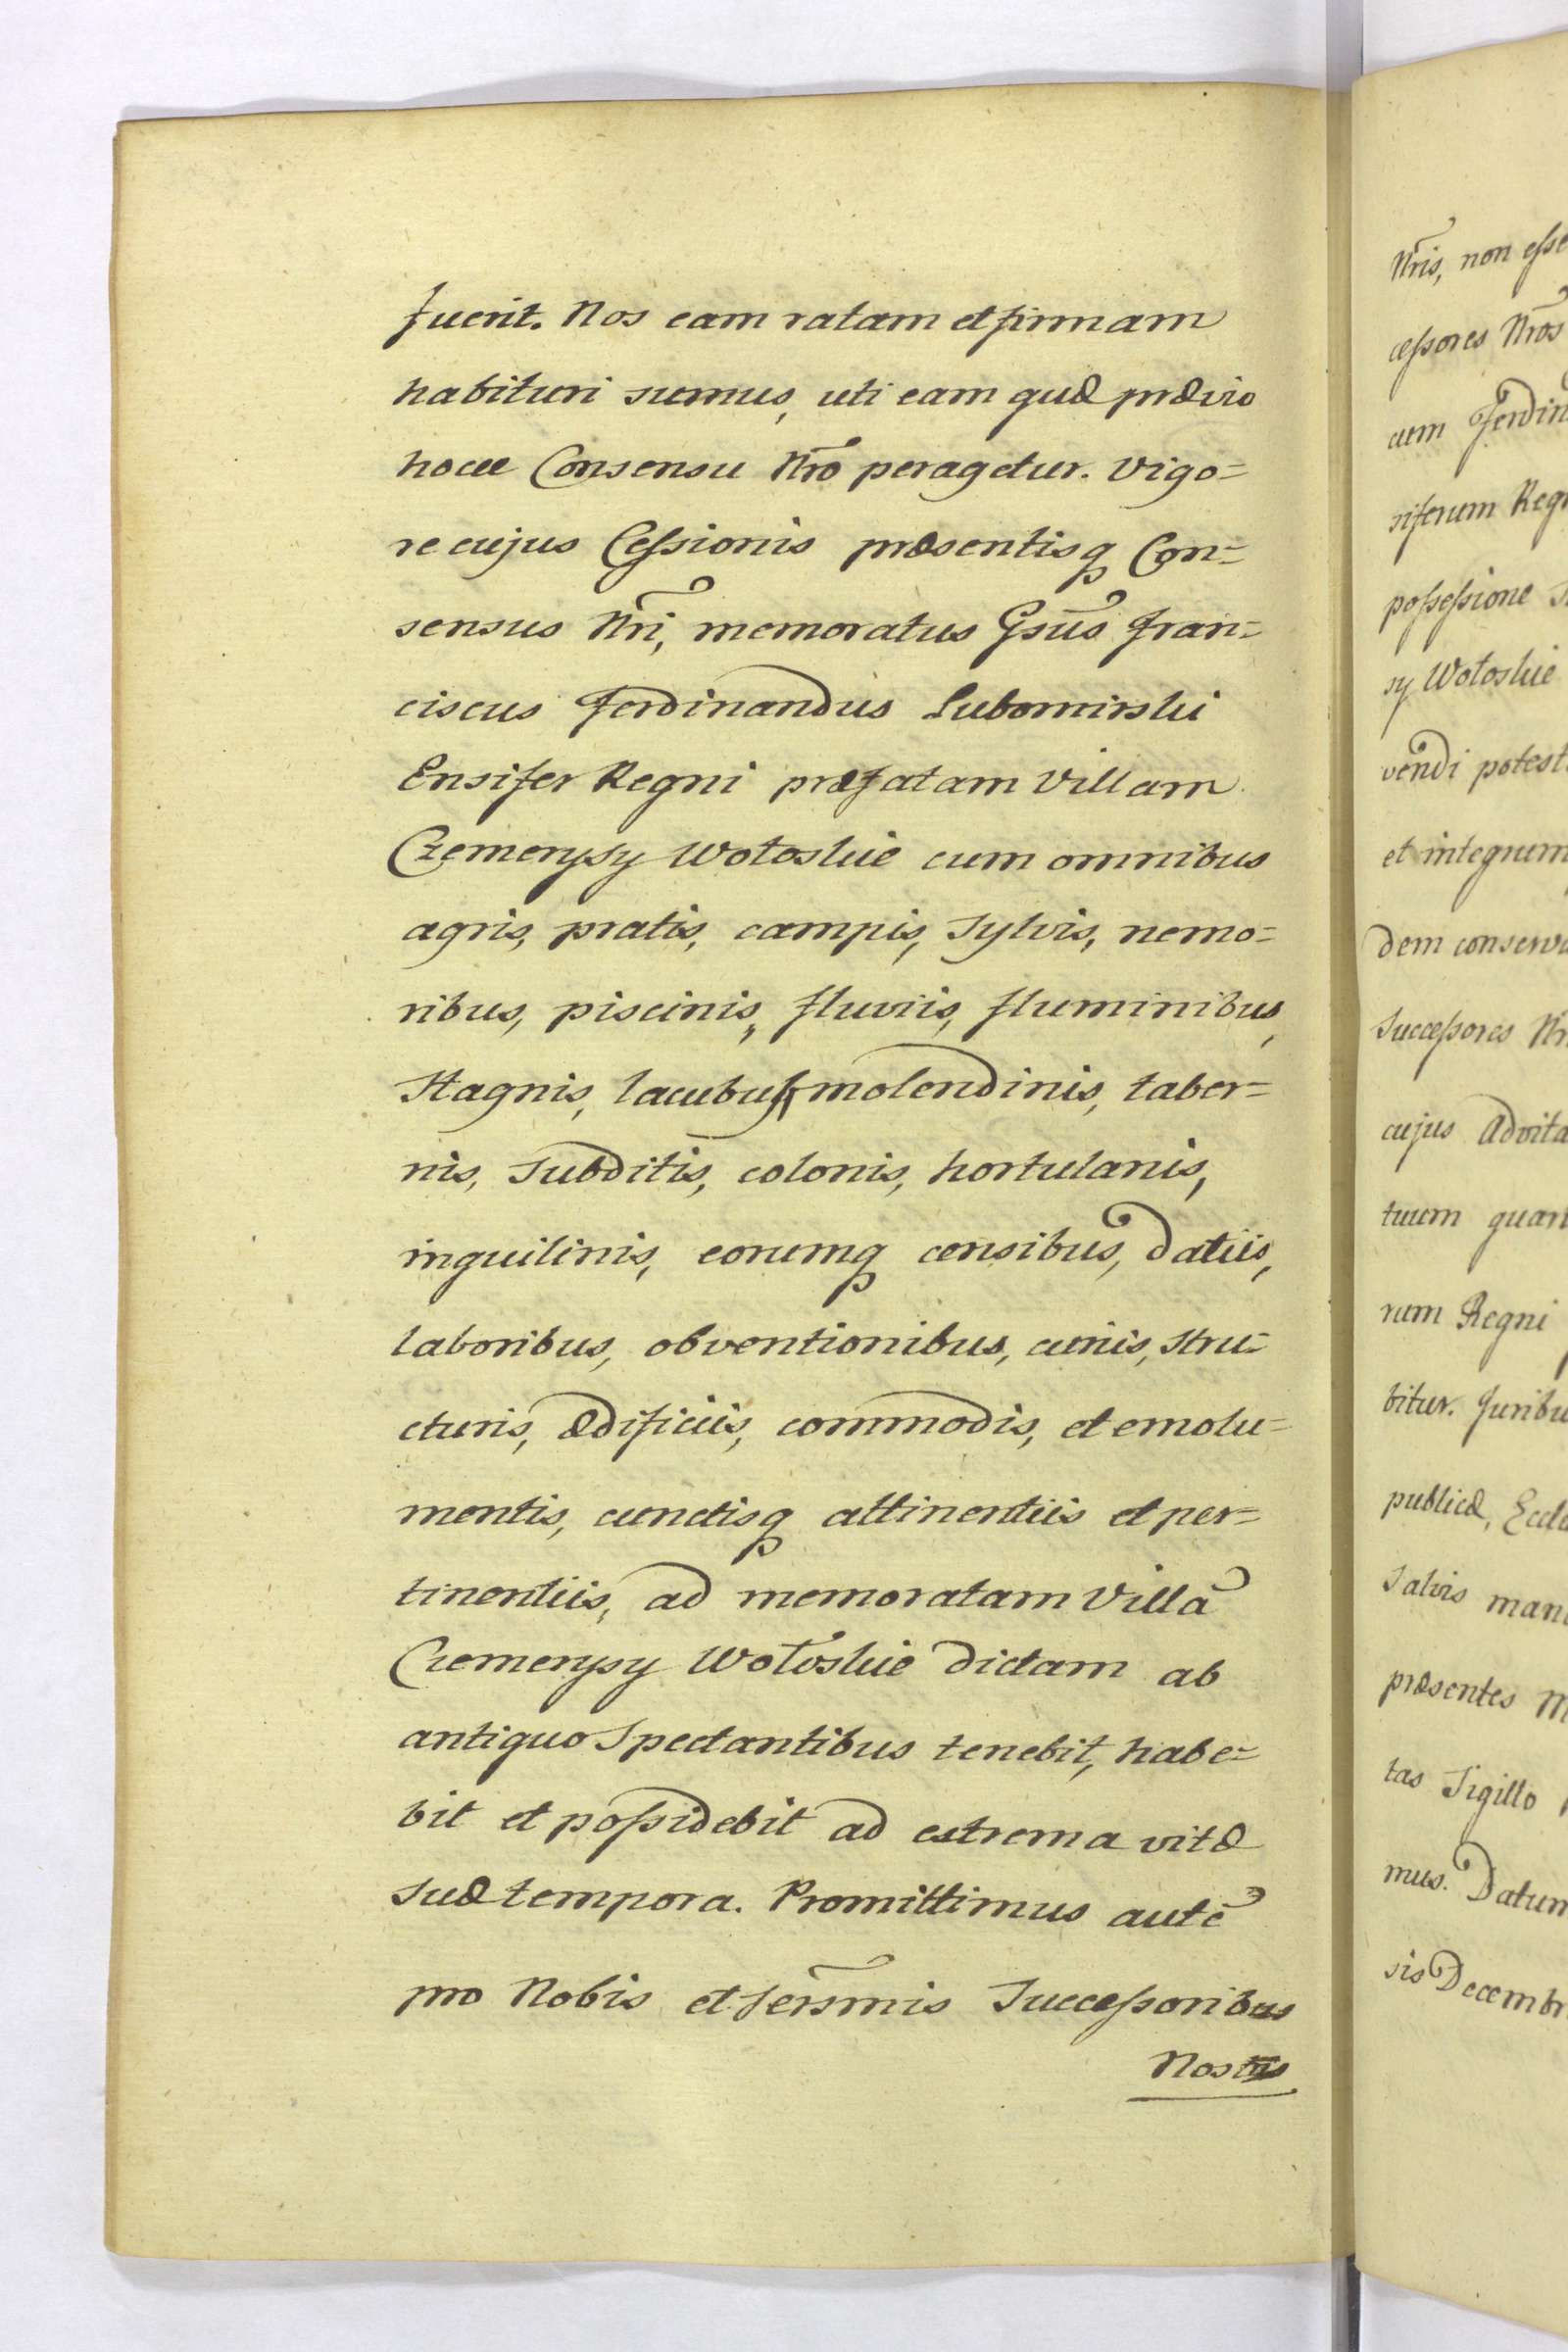 fuerit. Nos eam ratam et firmam
habituri sumus, uti eam quæ prævio
hocce Consensu Nr̃o peragetur. Vigo=
re cujus Cessionis præsentisq Con=
sensus Nr̃i, memoratus Gsũs Fran=
ciscus Ferdinandus Lubomirski
Ensifer Regni præfatam Villam
Czemerysy Wołoskie cum omnibus
agris, pratis, campis, Sylvis, nemo=
ribus, piscinis, fluviis, fluminibus,
Stagnis, lacubus, molendinis, taber=
nis, Subditis, colonis, hortulanis,
inquilinis, eorumq censibus, Datiis,
laboribus, obventionibus, curiis, stru=
cturis, ædificiis, commodis, et emolu=
mentis, cunctisq attinentiis et per=
tinentiis, ad memoratam Villã
Czemerysy Wołoskie dictam ab
antiquo Spectantibus tenebit, habe=
bit et possidebit ad extrema vitæ
Suæ tempora. Promittimus autẽ
pro Nobis et Sersm̃is Successoribus
Nostris
Nr̃is, non esse
cessores Nr̃os
cum Ferdin
siferum Reg
possessione
sy Wołoskie
vendi potest
et integrum
dem conserv
Successores Nr
cujus Advita
tuum quan
rum Regni
bitur. Juribu
publicæ, Eccle
Salvis man
præsentes M
tas Sigillo
mus. Datum
sis Decembr